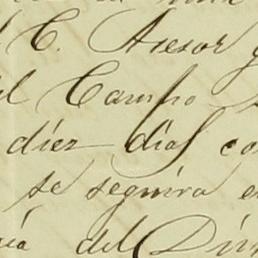 C. Asesor y
el Campo
diez dias co
se seguira e
del